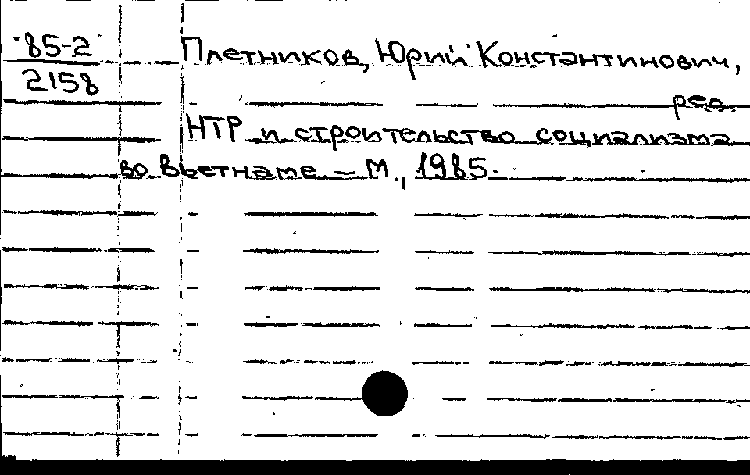 85-2
2158
Плетников, Юрий Константинович,
ред.
НТР и строительство социализма
во Вьетнаме – М., 1985.